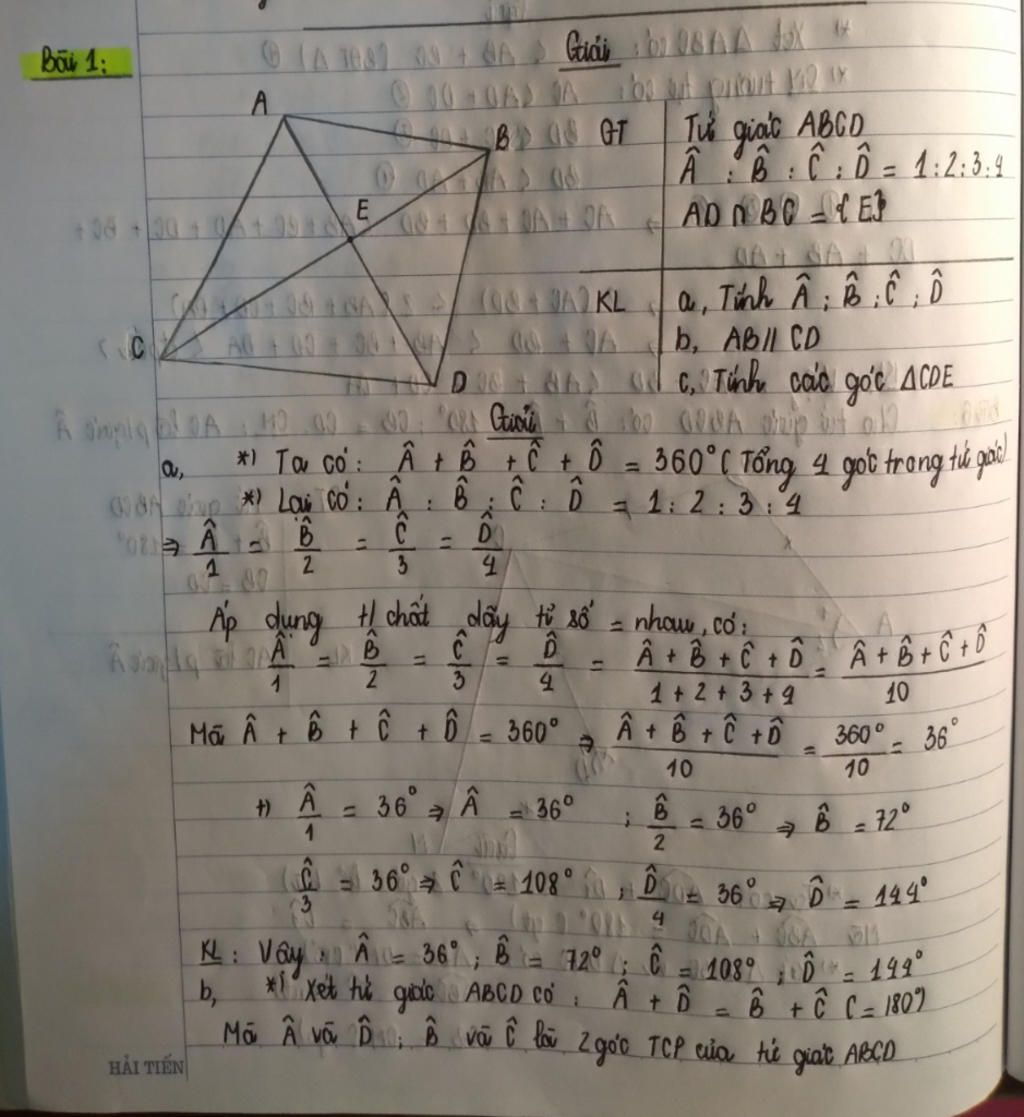 Bài 1:
Giải
A
B
E
C
D
GT
Tứ giác ABCD
Â : B̂ : Ĉ : D̂ = 1:2:3:4
AD ∩ BC = {E}
KL
a, Tính Â ; B̂ ; Ĉ ; D̂
b, AB // CD
c, Tính các góc ΔCDE
Giải
a, *) Ta có: Â + B̂ + Ĉ + D̂ = 360° (Tổng 4 góc trong tứ giác)
*) Lại có: Â : B̂ : Ĉ : D̂ = 1 : 2 : 3 : 4
⇒ Â/1 = B̂/2 = Ĉ/3 = D̂/4
Áp dụng t/chất dãy tỉ số = nhau, có:
Â/1 = B̂/2 = Ĉ/3 = D̂/4 = (Â + B̂ + Ĉ + D̂)/(1 + 2 + 3 + 4) = (Â + B̂ + Ĉ + D̂)/10
Mà Â + B̂ + Ĉ + D̂ = 360° ⇒ (Â + B̂ + Ĉ + D̂)/10 = 360°/10 = 36°
+) Â/1 = 36° ⇒ Â = 36° ; B̂/2 = 36° ⇒ B̂ = 72°
Ĉ/3 = 36° ⇒ Ĉ = 108° ; D̂/4 = 36° ⇒ D̂ = 144°
KL : Vậy Â = 36° ; B̂ = 72° ; Ĉ = 108° ; D̂ = 144°
b, *) Xét tứ giác ABCD có : Â + D̂ = B̂ + Ĉ (= 180°)
Mà Â và D̂ ; B̂ và Ĉ là 2 góc TCP của tứ giác ABCD
HẢI TIẾN